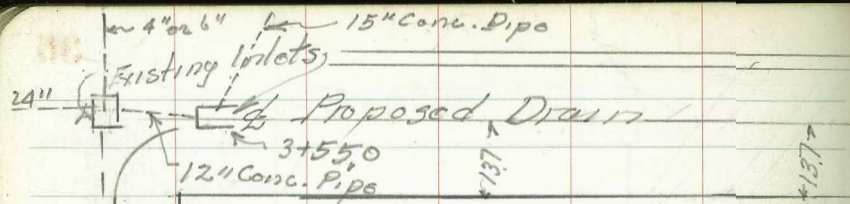 4" or 6"
15" Conc. Pipe
Existing Inlets
24"
℄ Proposed Drain
3+550
12" Conc. Pipe
13.7
13.7